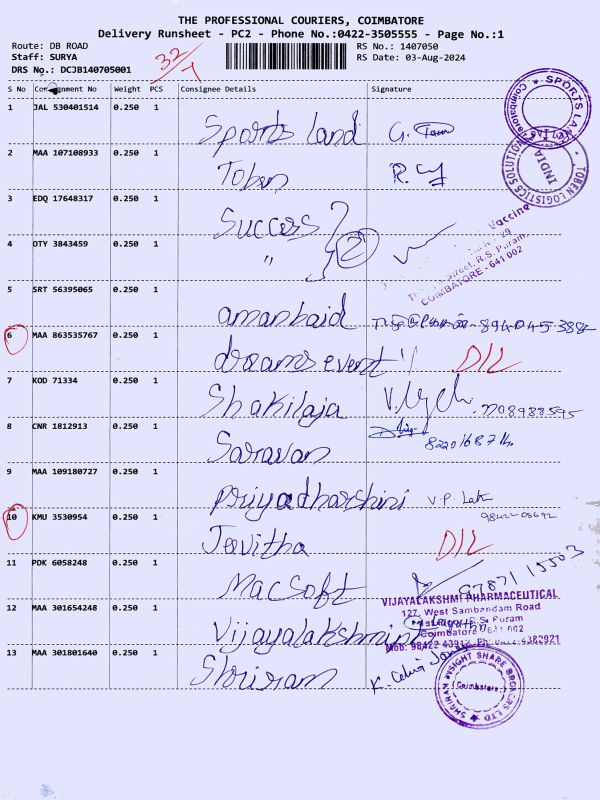 THE PROFESSIONAL COURIERS, COIMBATORE
Delivery Runsheet - PC2 - Phone No.:0422-3505555 - Page No.:1
Route: DB ROAD
Staff: SURYA
DRS No.: DCJB140705001
32/1
RS No.: 1407050
RS Date: 03-Aug-2024
S No Consignment No Weight PCS Consignee Details Signature
1 JAL 530401514 0.250 1 Sports land
2 MAA 107108933 0.250 1 Toben
3 EDQ 17648317 0.250 1 Success
4 OTY 3843459 0.250 1 " 2
5 SRT 56395065 0.250 1 amanhaid
6 MAA 863535767 0.250 1 dreams event D/L
7 KOD 71334 0.250 1 Shakilaja 7708988595
8 CNR 1812913 0.250 1 Saravan
9 MAA 109180727 0.250 1 Priyadharshini V.P.
10 KMU 3530954 0.250 1 Javitha D/L
11 PDK 6058248 0.250 1 Macsoft
12 MAA 301654248 0.250 1 Vijayalakshmi
13 MAA 301801640 0.250 1 Shriram
SPORTS LAND
Coimbatore
TOBEN LOGISTICS SOLUTION
INDIA
Vaccine
Street, R.S. Puram,
COIMBATORE - 641 002
VIJAYALAKSHMI PHARMACEUTICAL
127, West Sambandam Road
R.S. Puram
Coimbatore - 641 002
SHRIRAM INSIGHT SHARE BROKERS LTD
(Coimbatore)